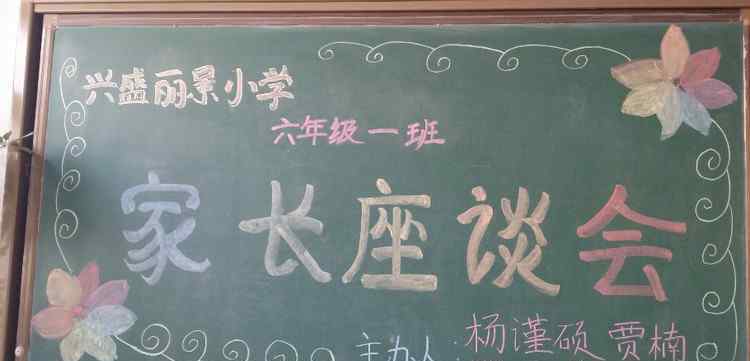 兴盛丽景小学
六年级一班
家长座谈会
主办人：杨谨硕 贾楠